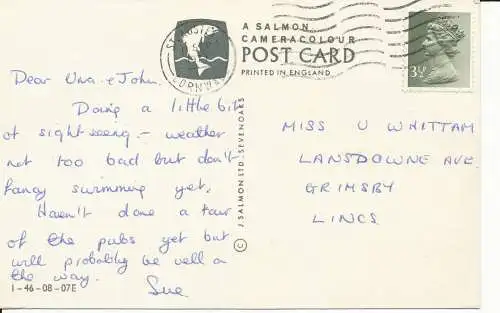 A SALMON
CAMERACOLOUR
POST CARD
PRINTED IN ENGLAND
ST. AUSTELL
CORNWALL
3½
Dear Una & John,
Doing a little bit
of sightseeing - weather
not too bad but don't
fancy swimming yet.
Haven't done a tour
of the pubs yet but
will probably be well on
the way.
Sue
1-46-08-07E
© J SALMON LTD · SEVENOAKS
MISS U WHITTAM
LANSDOWNE AVE
GRIMSBY
LINCS